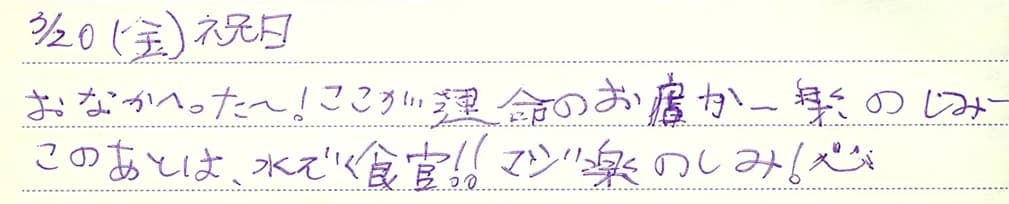 3/20(金)祝日
おなかへった〜!ここが運命のお店かー楽のしみー
このあとは、水ぞく食官!!マジ楽のしみ!